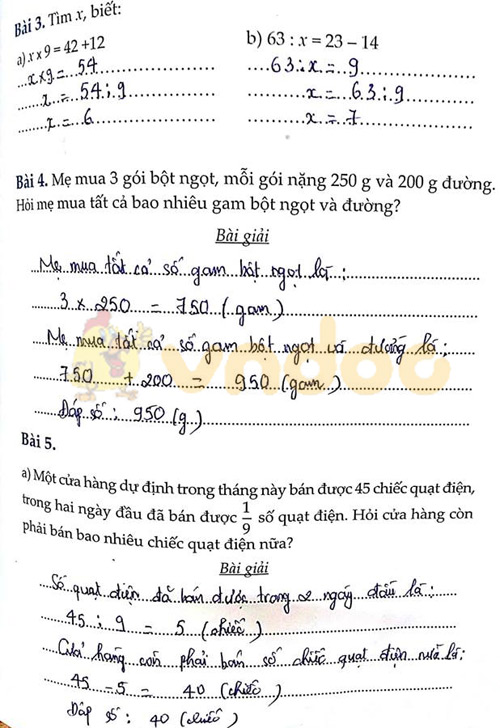 Bài 3. Tìm x, biết:
a) x x 9 = 42 +12
x x 9 = 54
x = 54 : 9
x = 6
b) 63 : x = 23 – 14
63 : x = 9
x = 63 : 9
x = 7
Bài 4. Mẹ mua 3 gói bột ngọt, mỗi gói nặng 250 g và 200 g đường.
Hỏi mẹ mua tất cả bao nhiêu gam bột ngọt và đường?
Bài giải
Mẹ mua tất cả số gam bột ngọt là :
3 x 250 = 750 (gam)
Mẹ mua tất cả số gam bột ngọt và đường là :
750 + 200 = 950 (gam)
Đáp số : 950 (g)
vndoc
Bài 5.
a) Một cửa hàng dự định trong tháng này bán được 45 chiếc quạt điện,
trong hai ngày đầu đã bán được 1/9 số quạt điện. Hỏi cửa hàng còn
phải bán bao nhiêu chiếc quạt điện nữa?
Bài giải
Số quạt điện đã bán được trong 2 ngày đầu là :
45 : 9 = 5 (chiếc)
Cửa hàng còn phải bán số chiếc quạt điện nữa là:
45 - 5 = 40 (chiếc)
Đáp số : 40 (chiếc)